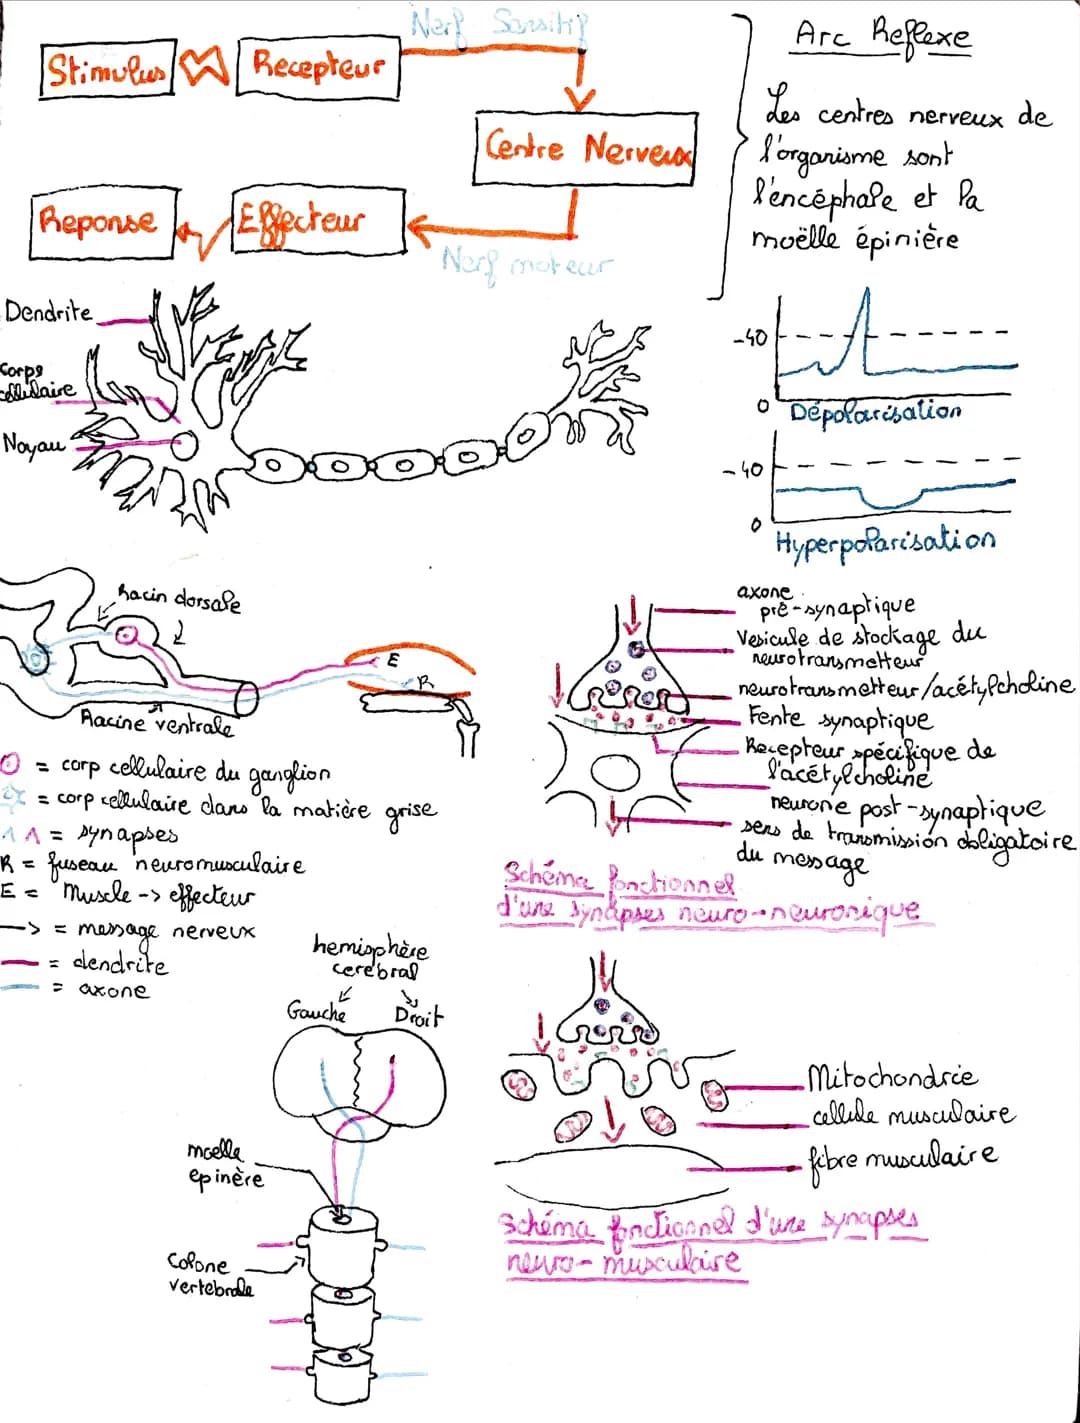 Nerf Sensitif
Stimulus
Recepteur
Centre Nerveux
Reponse
Effecteur
Nerf moteur
Arc Reflexe
Les centres nerveux de
l'organisme sont
l'encéphale et la
moëlle épinière
Dendrite
Corps
cellulaire
Noyau
-40
0
Dépolarisation
-40
0
Hyperpolarisation
Racin dorsale
E
R
Racine ventrale
= corp cellulaire du ganglion
= corp cellulaire dans la matière grise
= synapses
R = fuseau neuromusculaire
E = Muscle -> effecteur
—> = message nerveux
= dendrite
= axone
axone
pré-synaptique
Vesicule de stockage du
neurotransmetteur
neurotransmetteur/acétylcholine
Fente synaptique
Recepteur spécifique de
l'acétylcholine
neurone post-synaptique
sens de transmission obligatoire
du message
Schéma fonctionnel
d'une synapses neuro-neuronique
hemisphère
cerebral
Gauche
Droit
moelle
epinère
Colone
vertebrale
Mitochondrie
cellule musculaire
fibre musculaire
Schéma fonctionnel d'une synapses
neuro-musculaire